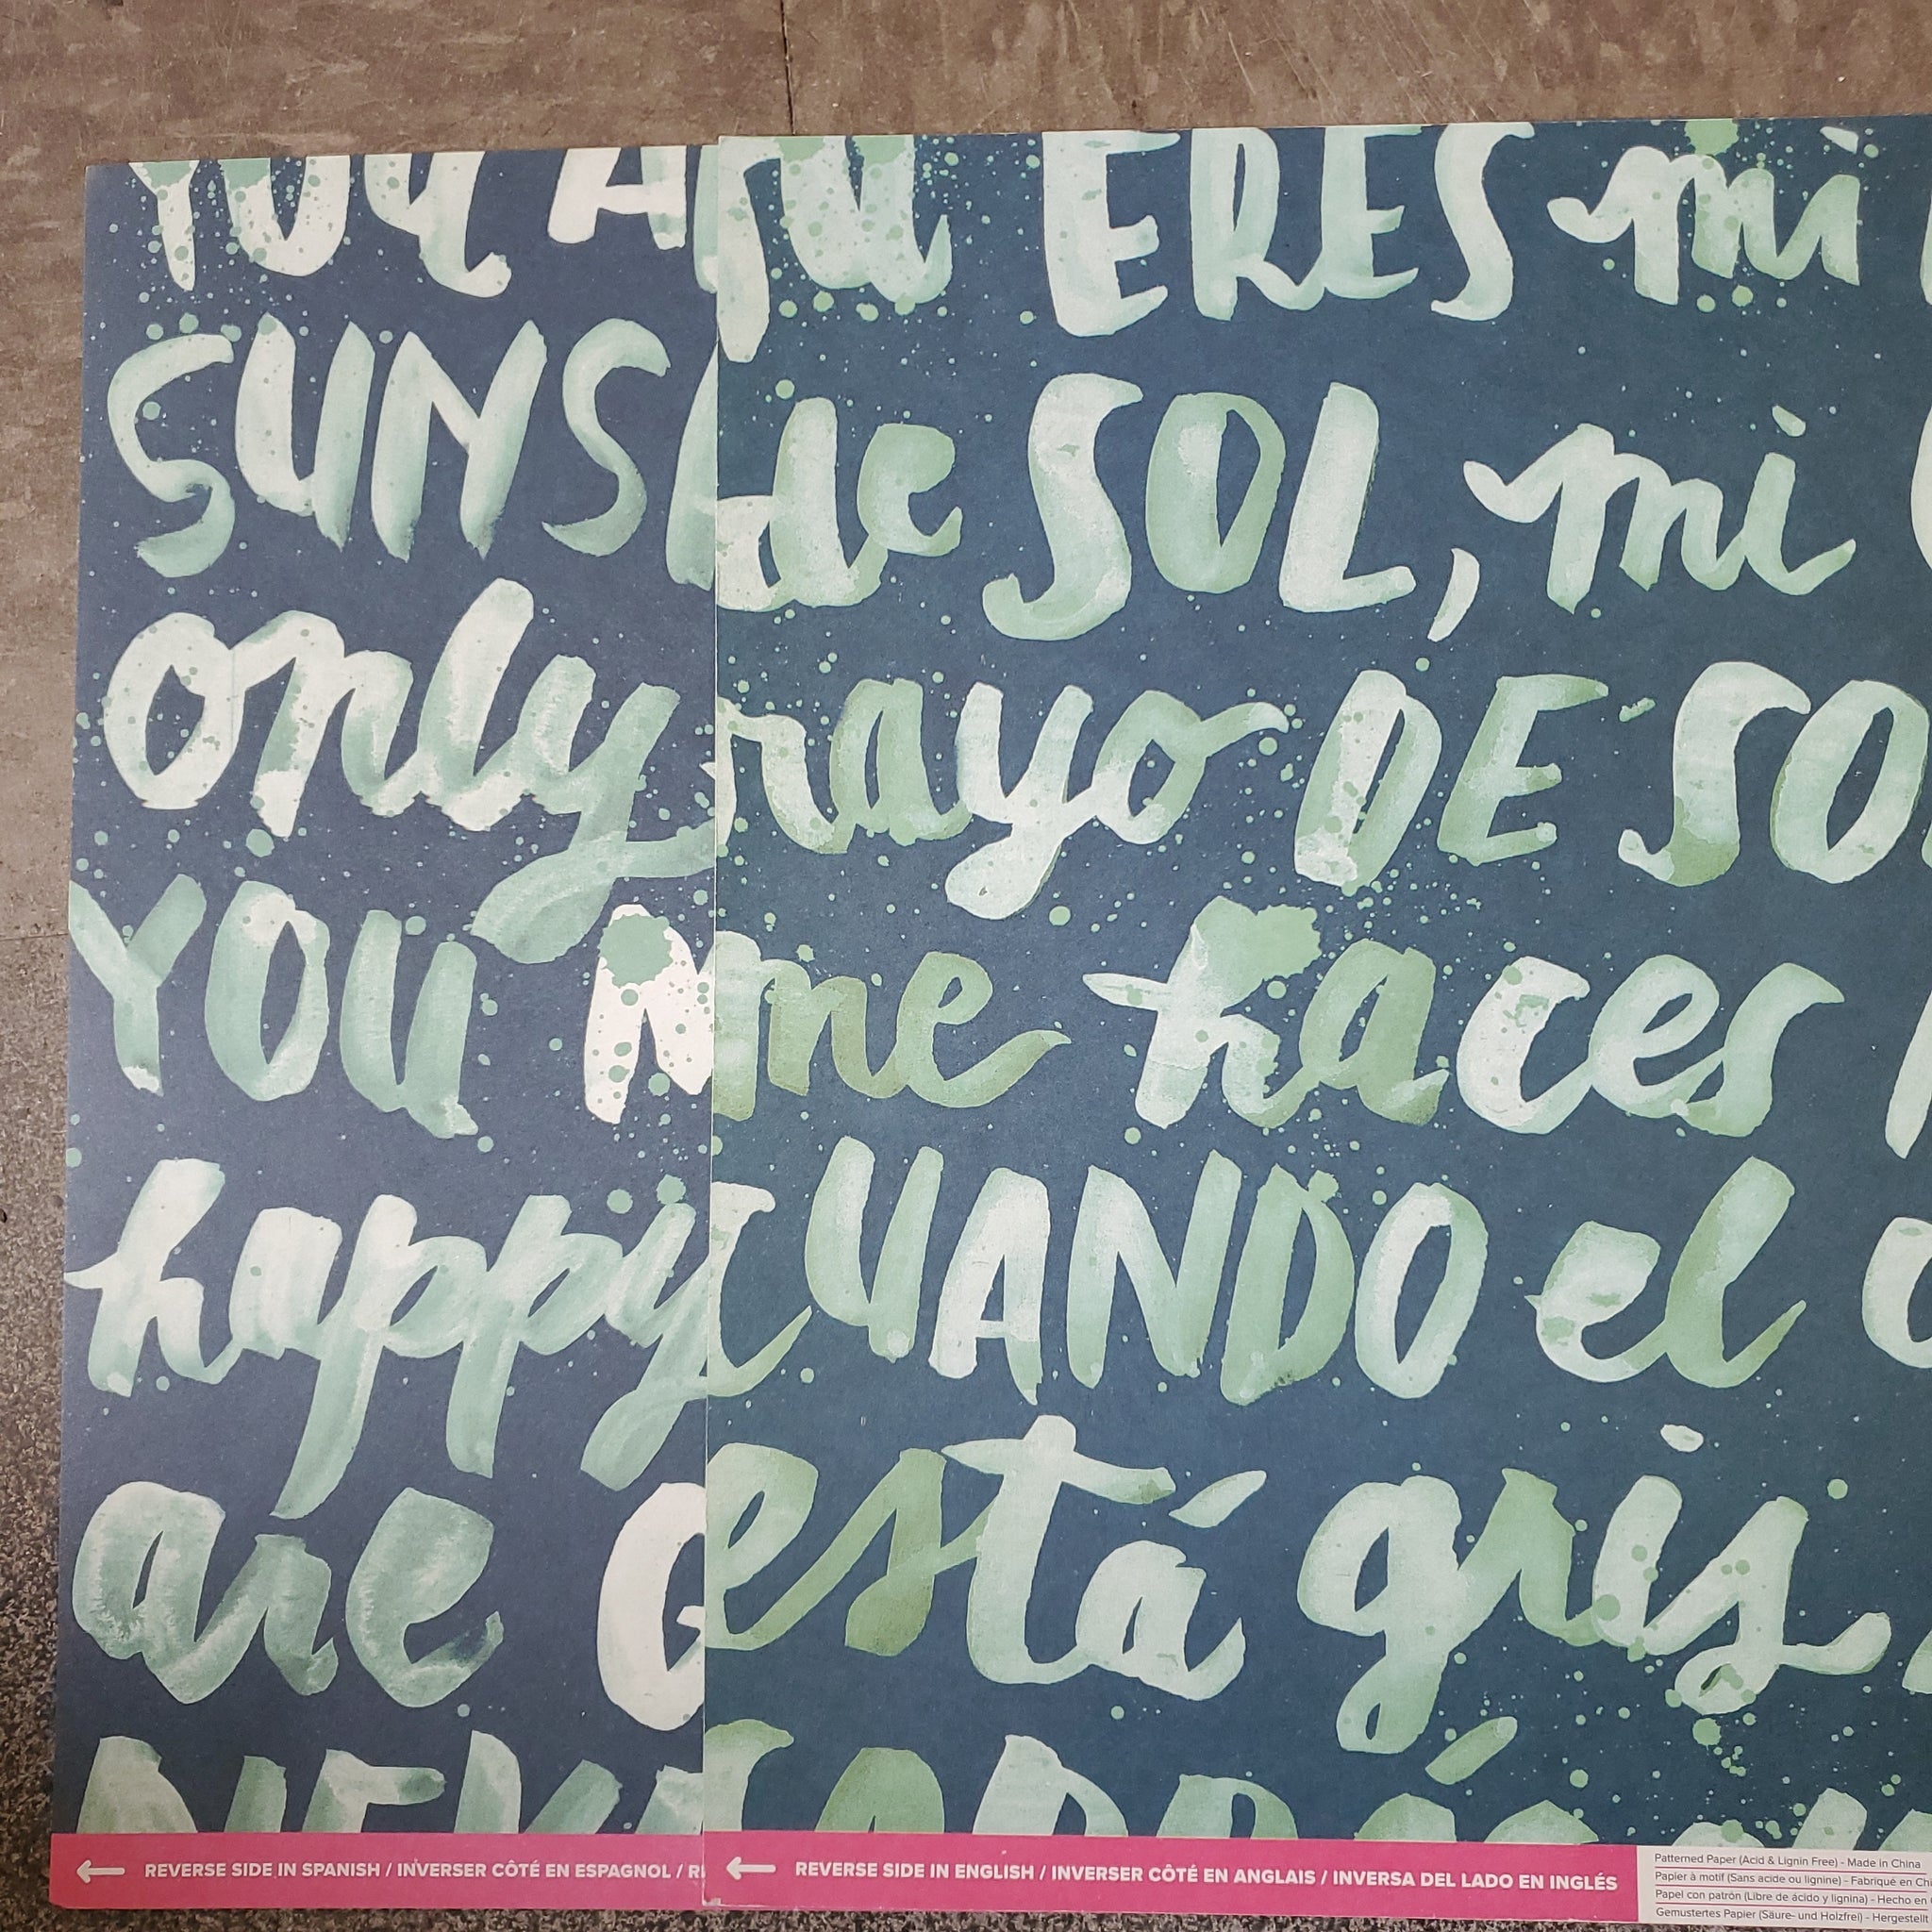 YOU
SUNS
only
YOU
happy
are
REVERSE SIDE IN SPANISH / INVERSER CÔTÉ EN ESPAGNOL /
TU ERES mi
de SOL, mi
rayo DE SO
me haces
CUANDO el
está gris,
REVERSE SIDE IN ENGLISH / INVERSER CÔTÉ EN ANGLAIS / INVERSA DEL LADO EN INGLÉS
Patterned Paper (Acid & Lignin Free) - Made in China
Papier à motif (Sans acide ou lignine) - Fabriqué en Chi
Papel con patrón (Libre de ácido y lignina) - Hecho en
Gemustertes Papier (Säure- und Holzfrei) - Hergestellt